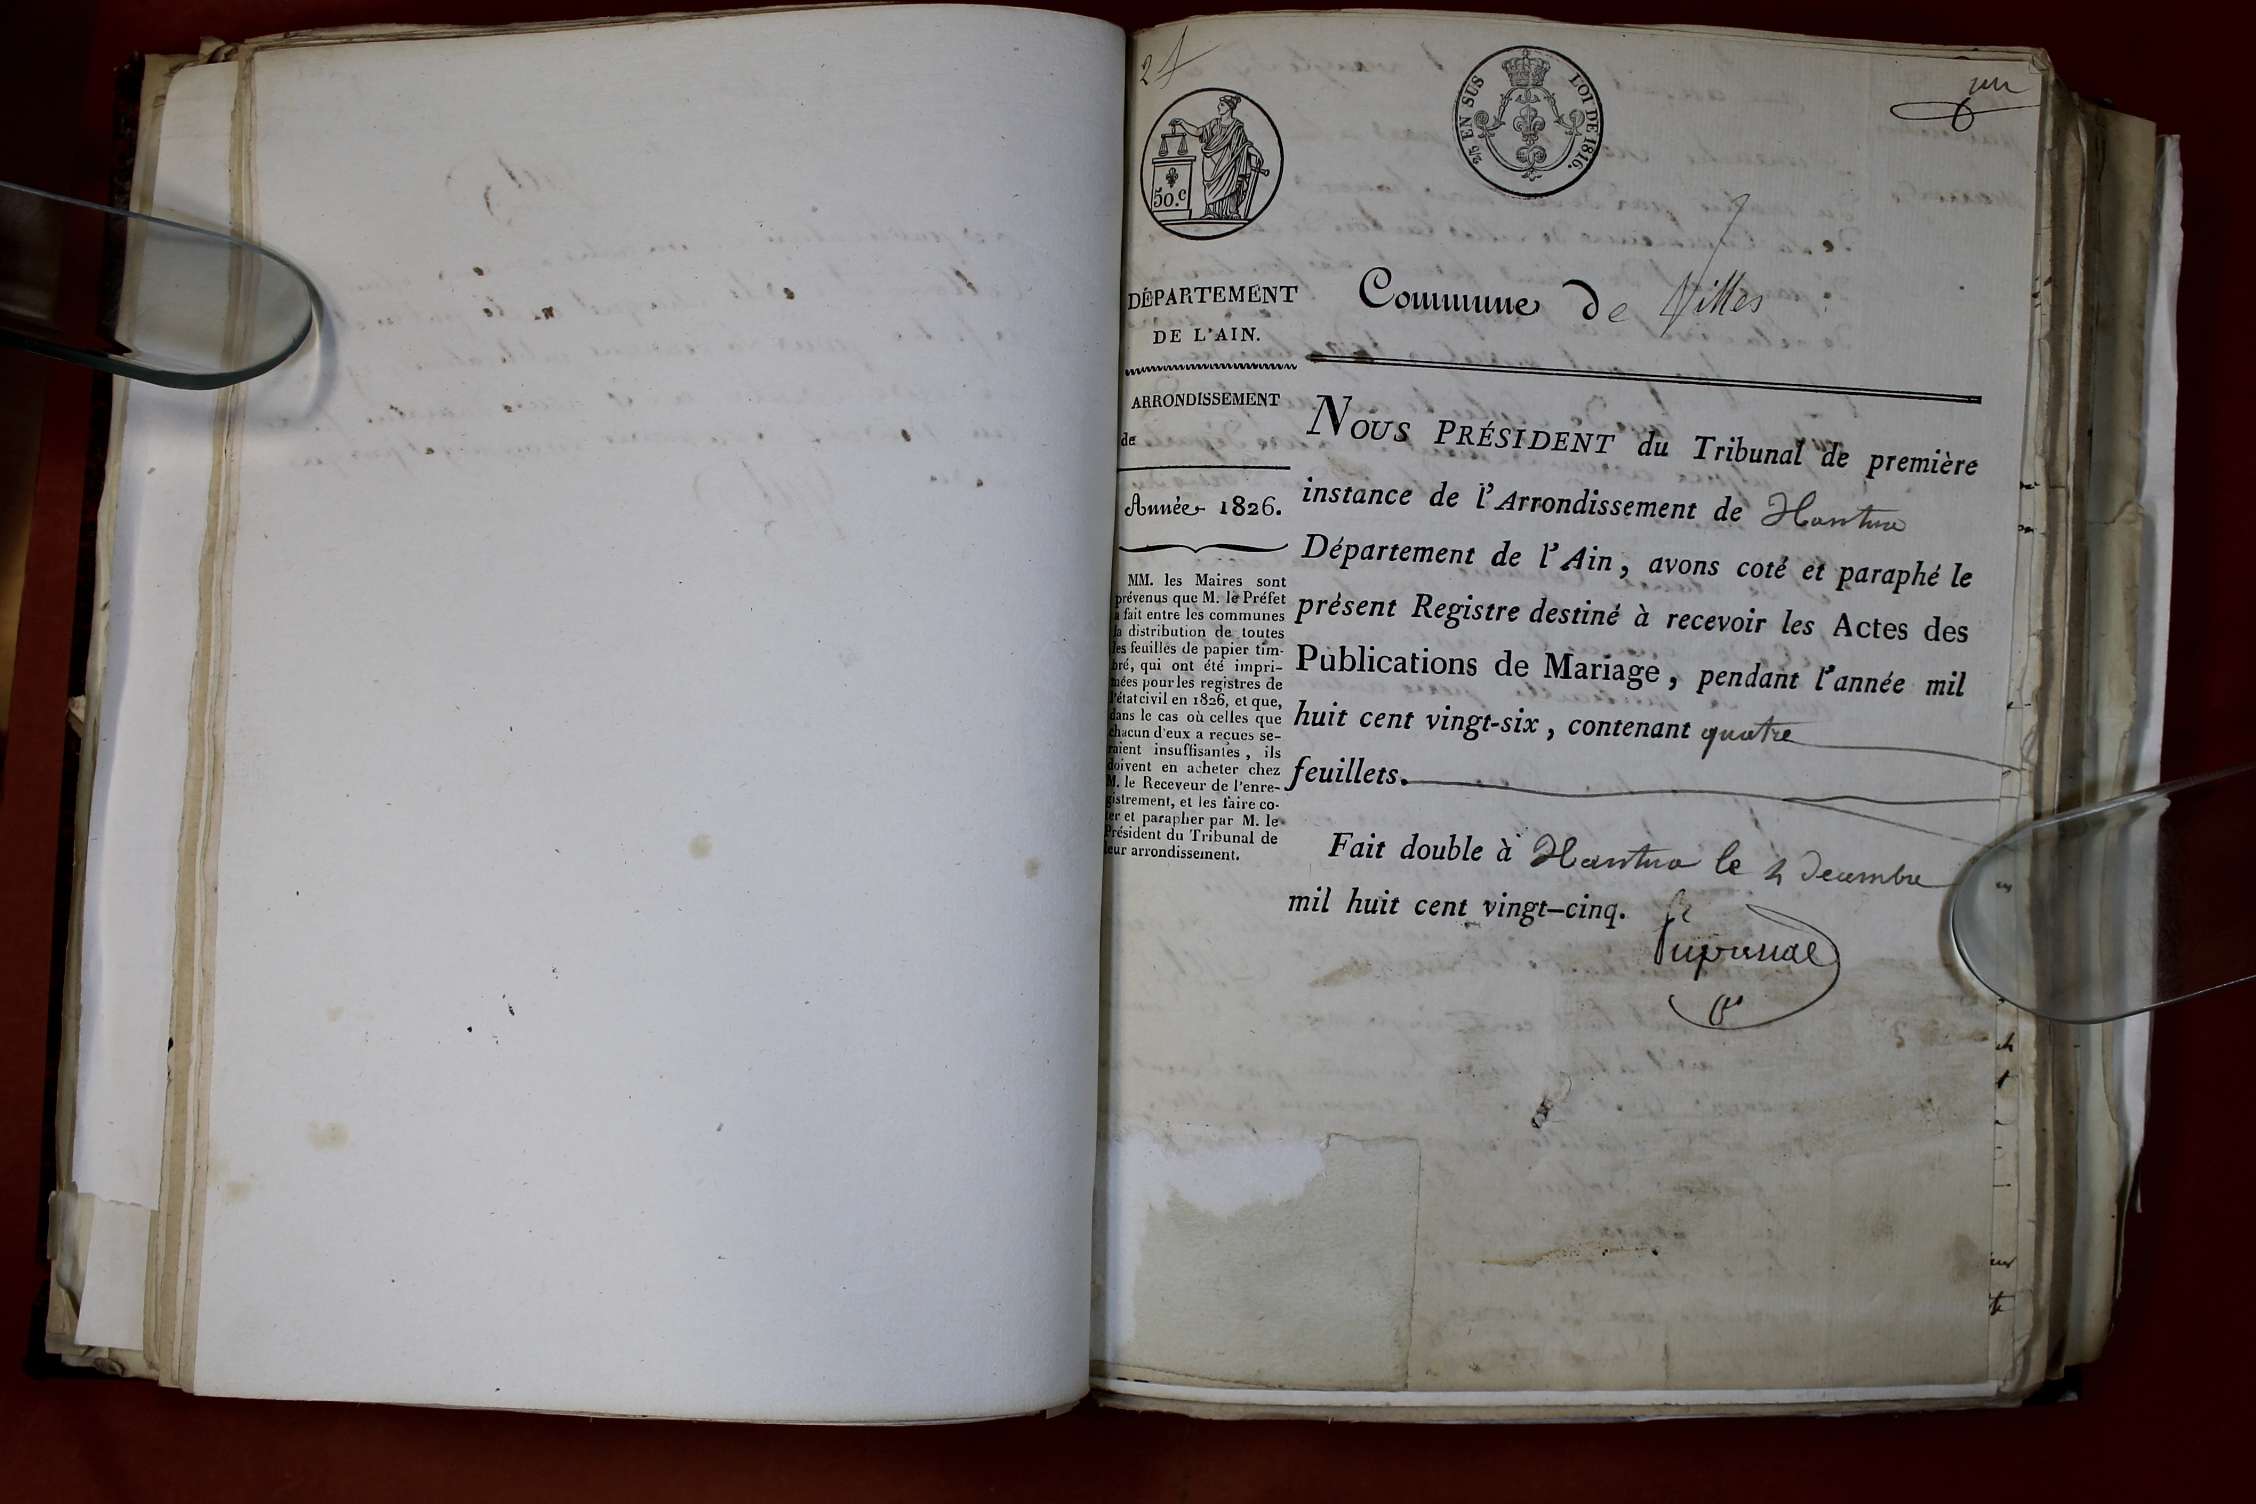 2/5 EN SUS
LOI DE 1816.
50.c
DÉPARTEMENT
DE L'AIN.
ARRONDISSEMENT
de
Année 1826.
MM. les Maires sont
prévenus que M. le Préfet
a fait entre les communes
la distribution de toutes
les feuilles de papier tim-
bré, qui ont été impri-
mées pour les registres de
l'état civil en 1826, et que,
dans le cas où celles que
chacun d'eux a reçues se-
raient insuffisantes, ils
doivent en acheter chez
M. le Receveur de l'enre-
gistrement, et les faire co-
ter et parapher par M. le
Président du Tribunal de
leur arrondissement.
Commune de Villes
NOUS PRÉSIDENT du Tribunal de première
instance de l'Arrondissement de Nantua
Département de l'Ain, avons coté et paraphé le
présent Registre destiné à recevoir les Actes des
Publications de Mariage, pendant l'année mil
huit cent vingt-six, contenant quatre
feuillets.
Fait double à Nantua le 2 decembre
mil huit cent vingt-cinq.